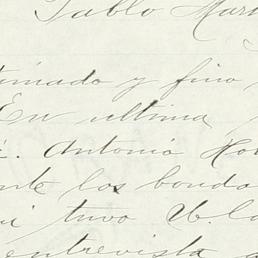 Pablo Mar
timado y fino
En ultima
Antonio Ho
nte los bonda
tuvo U. la
entrevista